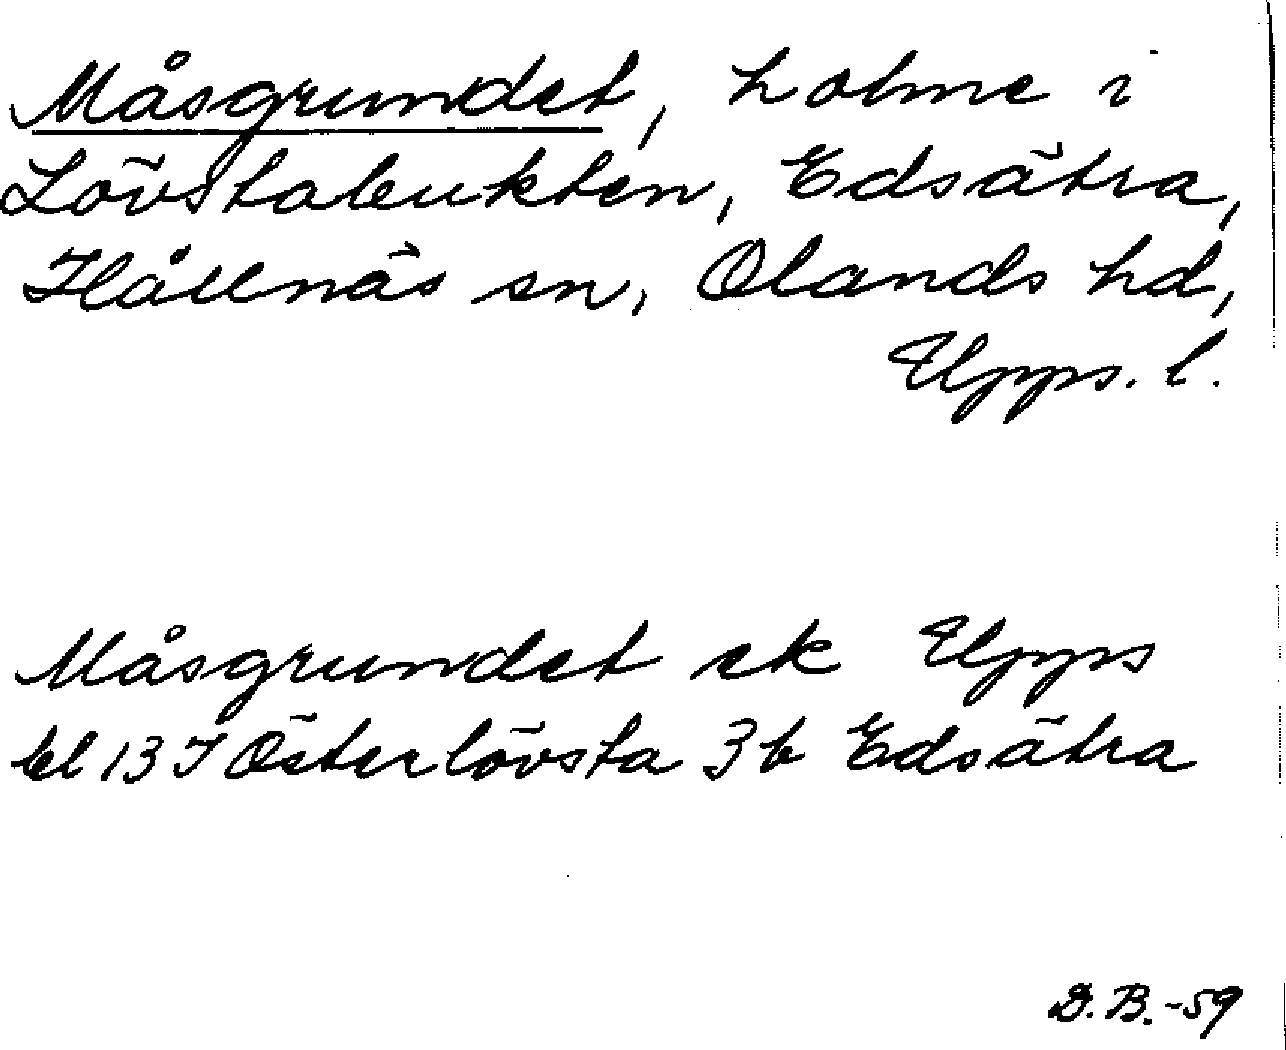 Måsgrundet, holme i
Lövstabukten, Edsätra,
Hållnäs sn, Olands hd,
Upps. l.
Måsgrundet ek Upps
bl 13 I Österlövsta 3b Edsätra
D.B.-59